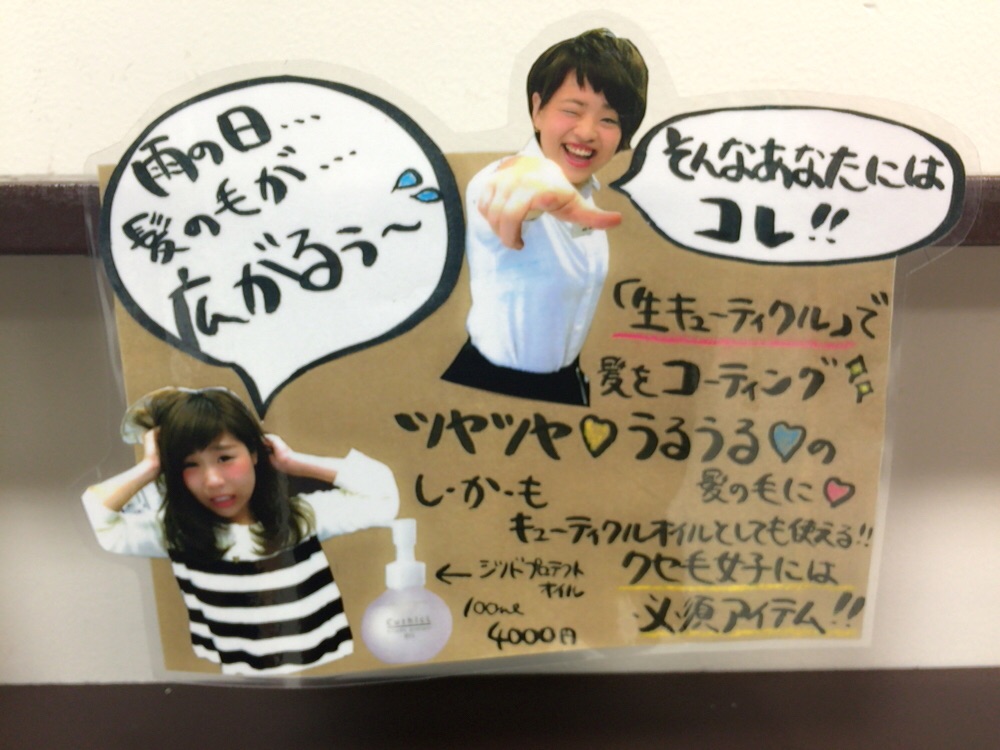 雨の日…
髪の毛が…
広がるぅ〜
そんなあなたには
コレ!!
「生キューティクル」で
髪をコーティング
ツヤツヤ♡うるうる♡の
髪の毛に♡
し・か・も
キューティクルオイルとしても使える!!
クセ毛女子には
必須アイテム!!
← ジンドプロテクト
オイル
100ml
4000円